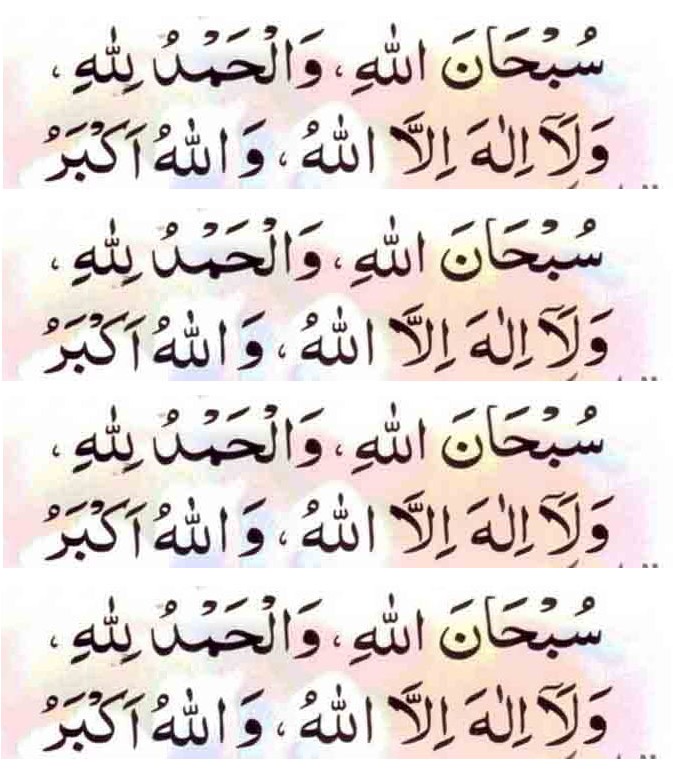 سُبْحَانَ اللّٰهِ، وَالْحَمْدُ لِلّٰهِ،
وَلَآ اِلٰهَ اِلَّا اللّٰهُ، وَاللّٰهُ اَكْبَرُ
سُبْحَانَ اللّٰهِ، وَالْحَمْدُ لِلّٰهِ،
وَلَآ اِلٰهَ اِلَّا اللّٰهُ، وَاللّٰهُ اَكْبَرُ
سُبْحَانَ اللّٰهِ، وَالْحَمْدُ لِلّٰهِ،
وَلَآ اِلٰهَ اِلَّا اللّٰهُ، وَاللّٰهُ اَكْبَرُ
سُبْحَانَ اللّٰهِ، وَالْحَمْدُ لِلّٰهِ،
وَلَآ اِلٰهَ اِلَّا اللّٰهُ، وَاللّٰهُ اَكْبَرُ